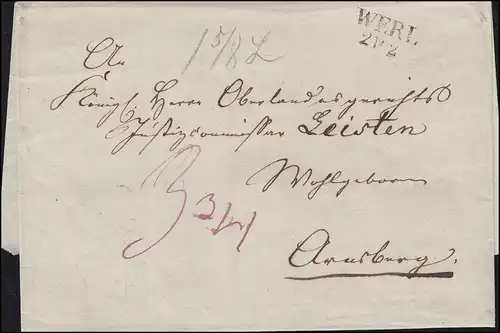 WERL
21/2
1 5/8 L
An
Königl. Herrn Oberlandesgerichts
Justizcommissar Leisten
Wohlgeboren
3 3/4
Arnsberg.